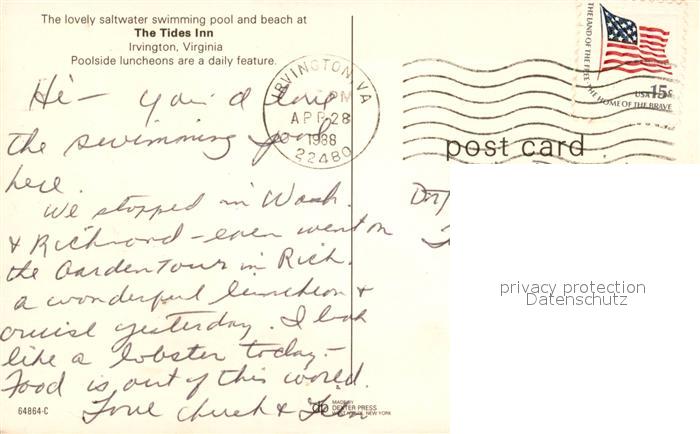 The lovely saltwater swimming pool and beach at
The Tides Inn
Irvington, Virginia
Poolside luncheons are a daily feature.
Hi — You'd love
the swimming pool
here.
We stopped in Wash.
& Richmond – even went on
the Garden Tour in Rich.
a wonderful luncheon &
cruise yesterday. I look
like a lobster today –
Food is out of this world.
Love Chuck &
64864-C
MADE BY
DEXTER PRESS
NEW YORK
IRVINGTON, VA
PM
APR 28
1988
22480
THE LAND OF THE FREE
THE HOME OF THE BRAVE
USA 15c
post card
privacy protection
Datenschutz